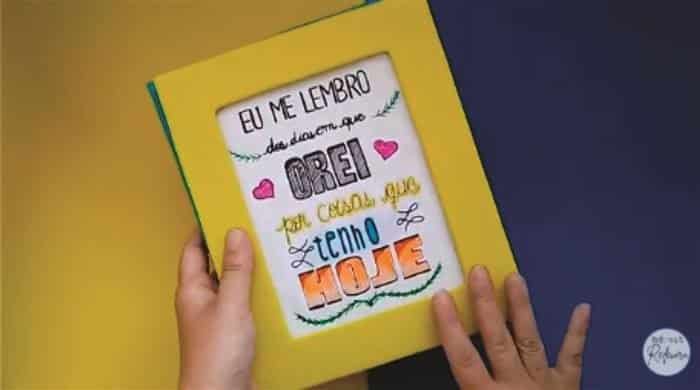 EU ME LEMBRO
dos dias em que
OREI
por coisas que
tenho
HOJE